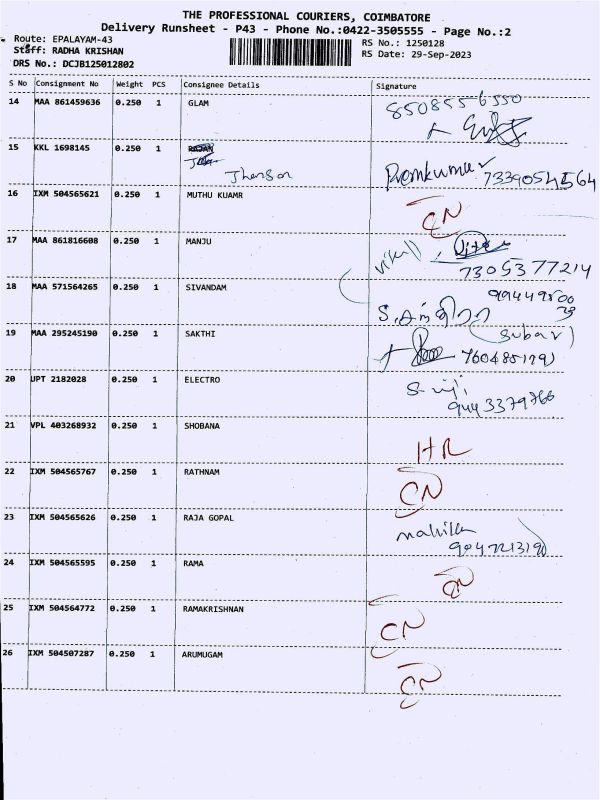 THE PROFESSIONAL COURIERS, COIMBATORE
Delivery Runsheet - P43 - Phone No.:0422-3505555 - Page No.:2
Route: EPALAYAM-43 RS No.: 1250128
Staff: RADHA KRISHAN RS Date: 29-Sep-2023
DRS No.: DCJB125012802
S No Consignment No Weight PCS Consignee Details Signature
14 MAA 861459636 0.250 1 GLAM 8508556550
15 KKL 1698145 0.250 1 RAJAN
Jhenson Premkumar 7339054564
16 IXM 504565621 0.250 1 MUTHU KUAMR CN
17 MAA 861816608 0.250 1 MANJU
7305377214
18 MAA 571564265 0.250 1 SIVANDAM
19 MAA 295245190 0.250 1 SAKTHI
20 UPT 2182028 0.250 1 ELECTRO
9443379766
21 VPL 403268932 0.250 1 SHOBANA HR
22 IXM 504565767 0.250 1 RATHNAM CN
23 IXM 504565626 0.250 1 RAJA GOPAL
24 IXM 504565595 0.250 1 RAMA CN
25 IXM 504564772 0.250 1 RAMAKRISHNAN CN
26 IXM 504507287 0.250 1 ARUMUGAM CN